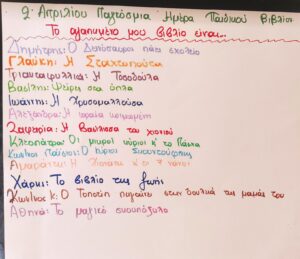 2 Απριλίου Παγκόσμια Ημέρα Παιδικού Βιβλίου
Το αγαπημένο μου βιβλίο είναι...
Δημήτρης: Ο Δεινόσαυρος πάει σχολείο
Γλαύκη: Η Σταχτοπούτα
Τριανταφυλλιά: Η Τοσοδούλα
Βασίλης: στα όπλα
Ιωάννης: Η Χρυσομαλλούσα
Αλεξάνδρα: Η ωραία κοιμωμένη
Ζαφειρία: Η Βασίλισσα του χιονιού
Κλεοπάτρα: Οι μικροί κύριοι κ' το Πάσχα
Κων/νος Ο κύριος
Η Χιονάτη κ' οι 7 νάνοι
Χάρης: Το βιβλίο της ζωής
Κων/νος Κ: Ο Τοποτίπ πηγαίνει στην δουλειά της μαμάς του
Αθηνά: Το μαγικό σκουπόξυλο